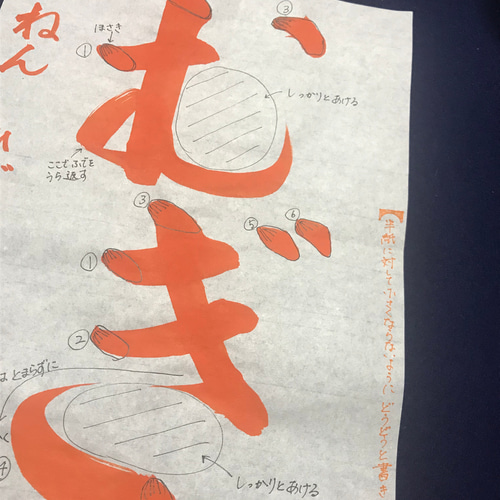 むぎ
①
ほさき
③
しっかりとあける
ここでふでを
うら返す
③
①
②
⑤
⑥
はとまらずに
④
しっかりとあける
【半紙に対して小さくならないように、どうどうと書き
ねん